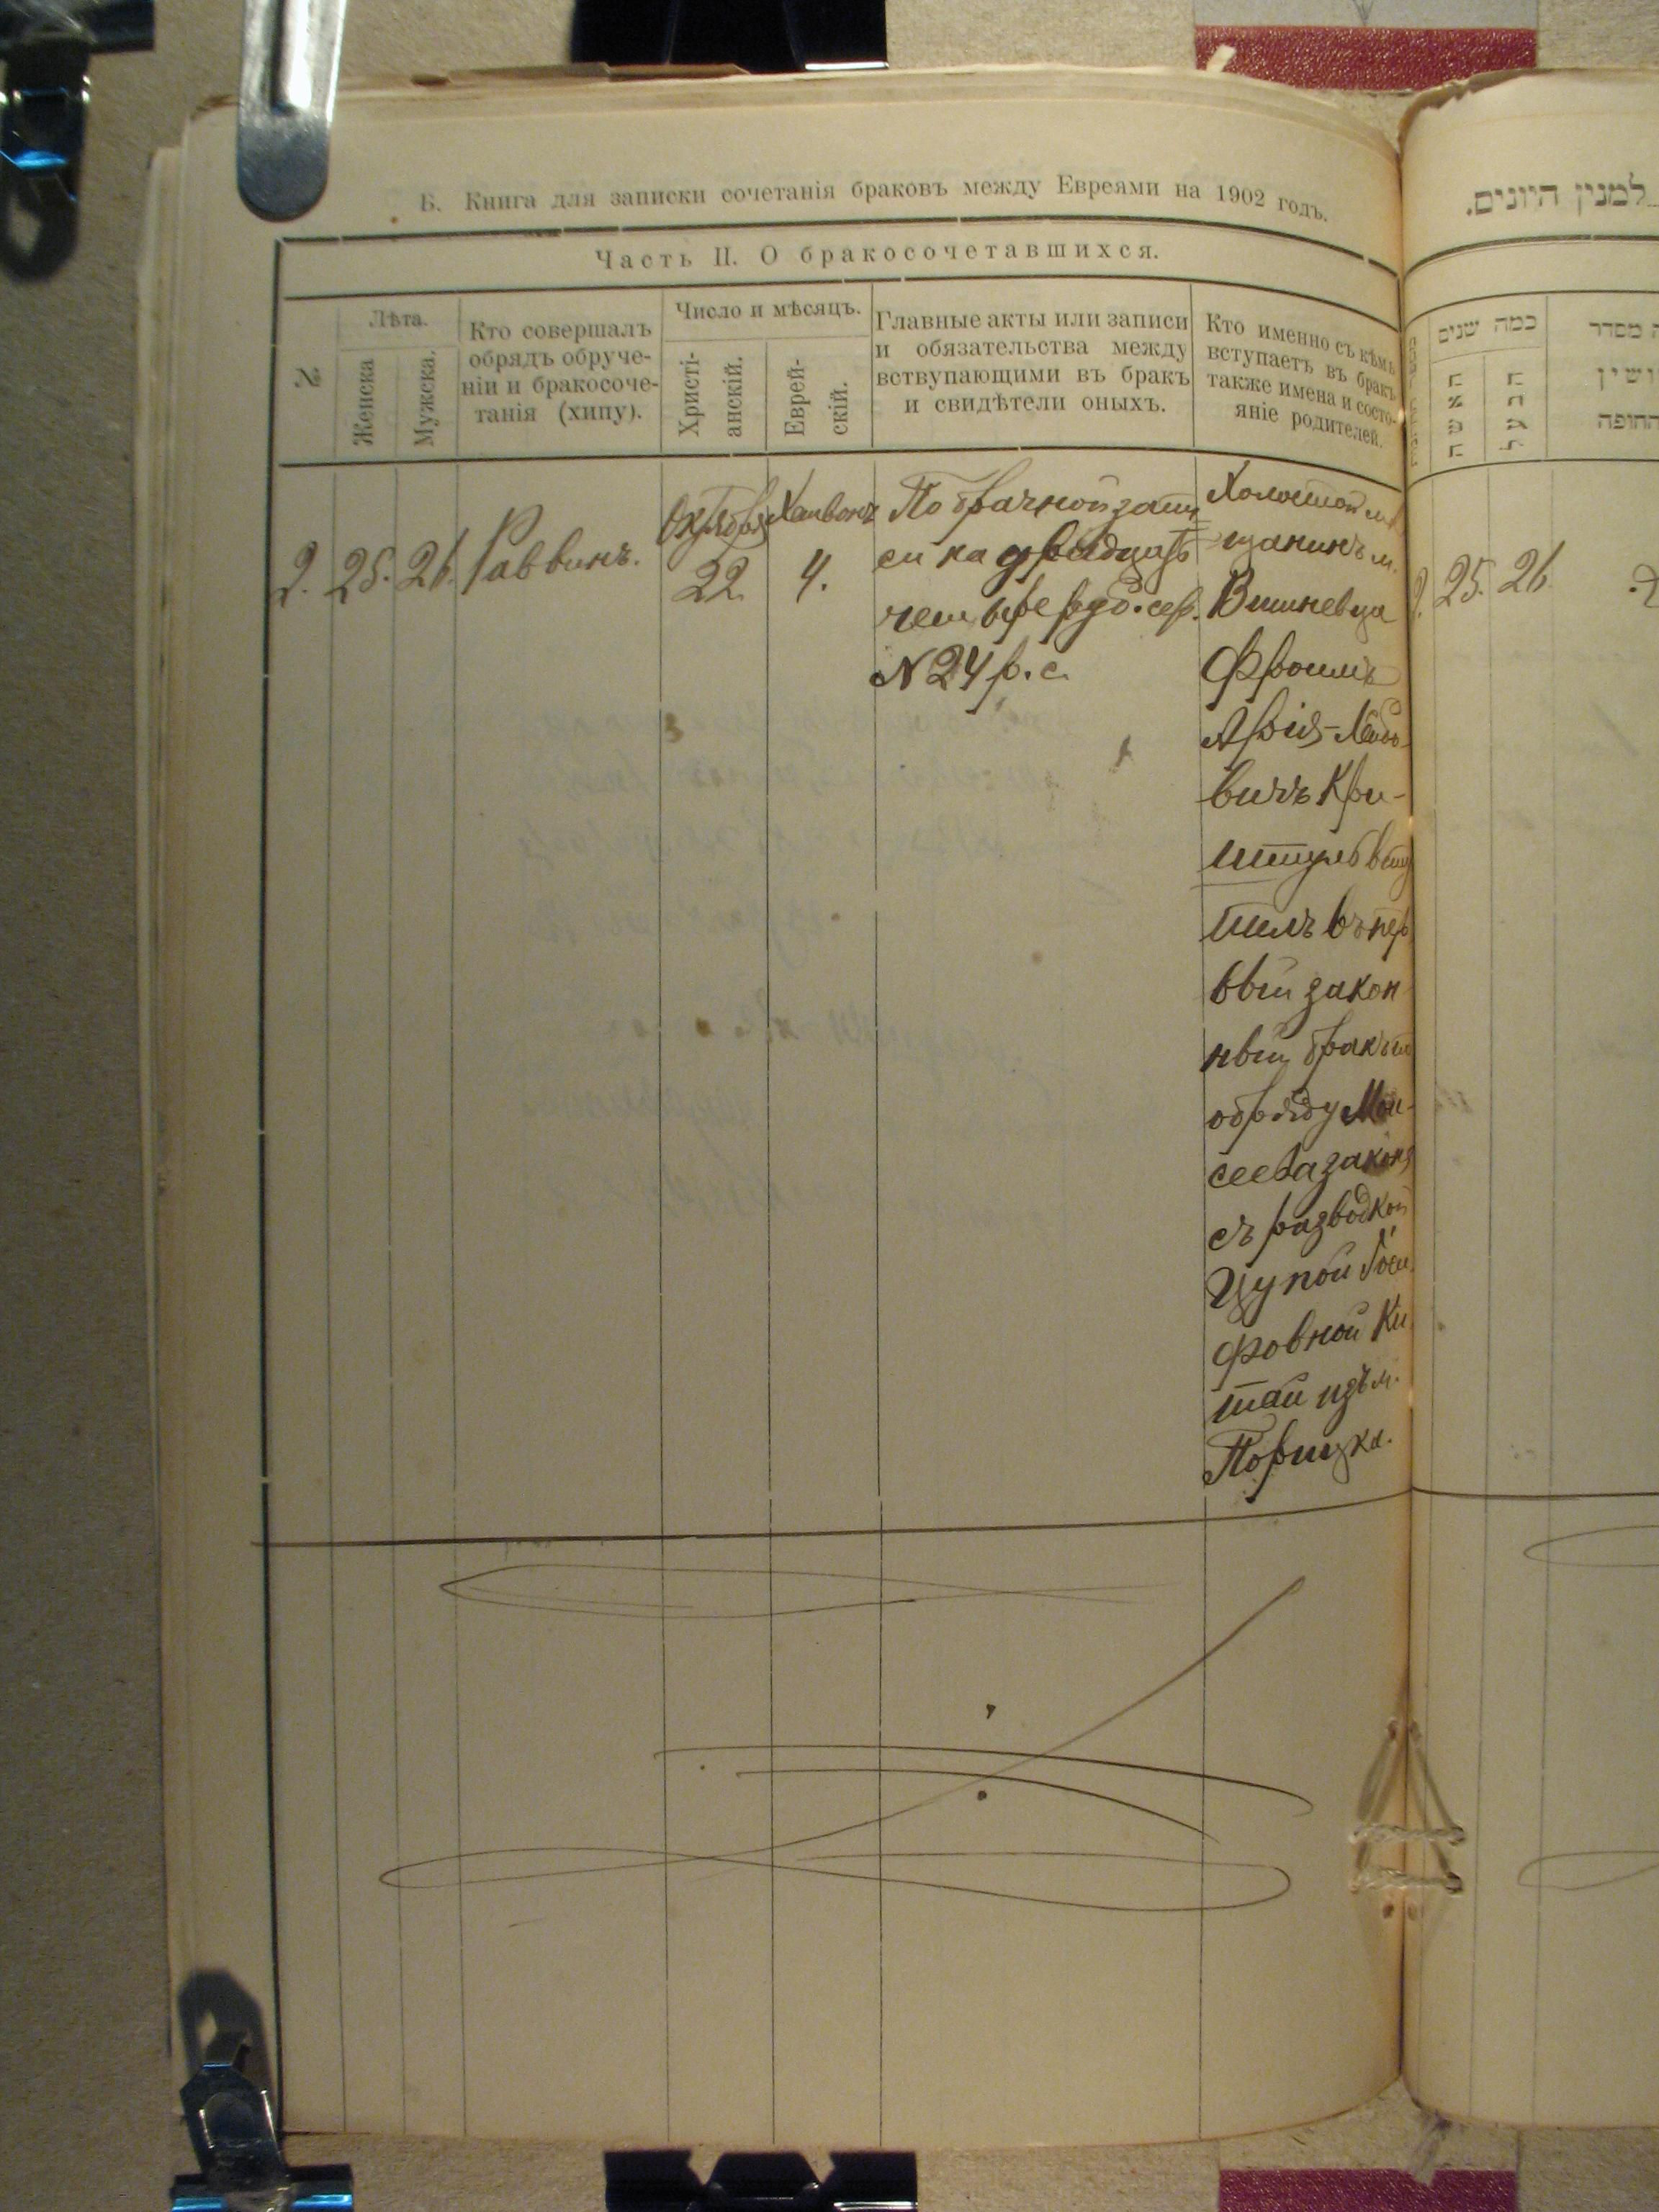 Б. Книга для записки сочетанія браковъ между Евреями на 1902 годъ.
Часть II. О бракосочетавшихся.
№
Лѣта.
Женска
Мужска.
Кто совершалъ
обрядъ обруче-
ніи и бракосоче-
танія (хипу).
Число и мѣсяцъ.
Христі-
анскій.
Еврей-
скій.
Главные акты или записи
и обязательства между
вствупающими въ бракъ
и свидѣтели оныхъ.
Кто именно съ кѣмъ
вступаетъ въ бракъ
также имена и состо-
яніе родителей.
2. 25. 26. Раввинъ.
Октября
22
4.
По брачной запи
си на двадцать
четыре руб. сер.
N 24 р. с.
Холостой мѣ
щанинъ м.
Вишневца
Фроимъ
Арія-Лейбо-
вичъ Кри-
штулъ всту
пилъ въ пер
вый закон
ный бракъ по
обряду Мои-
сеева закона
съ разводкой
Цупой
фовной Ки
тай изъ м.
Порицка.
למנין היונים.
כמה שנים
האשה
הבעל
מסדר
החופה
25. 26.